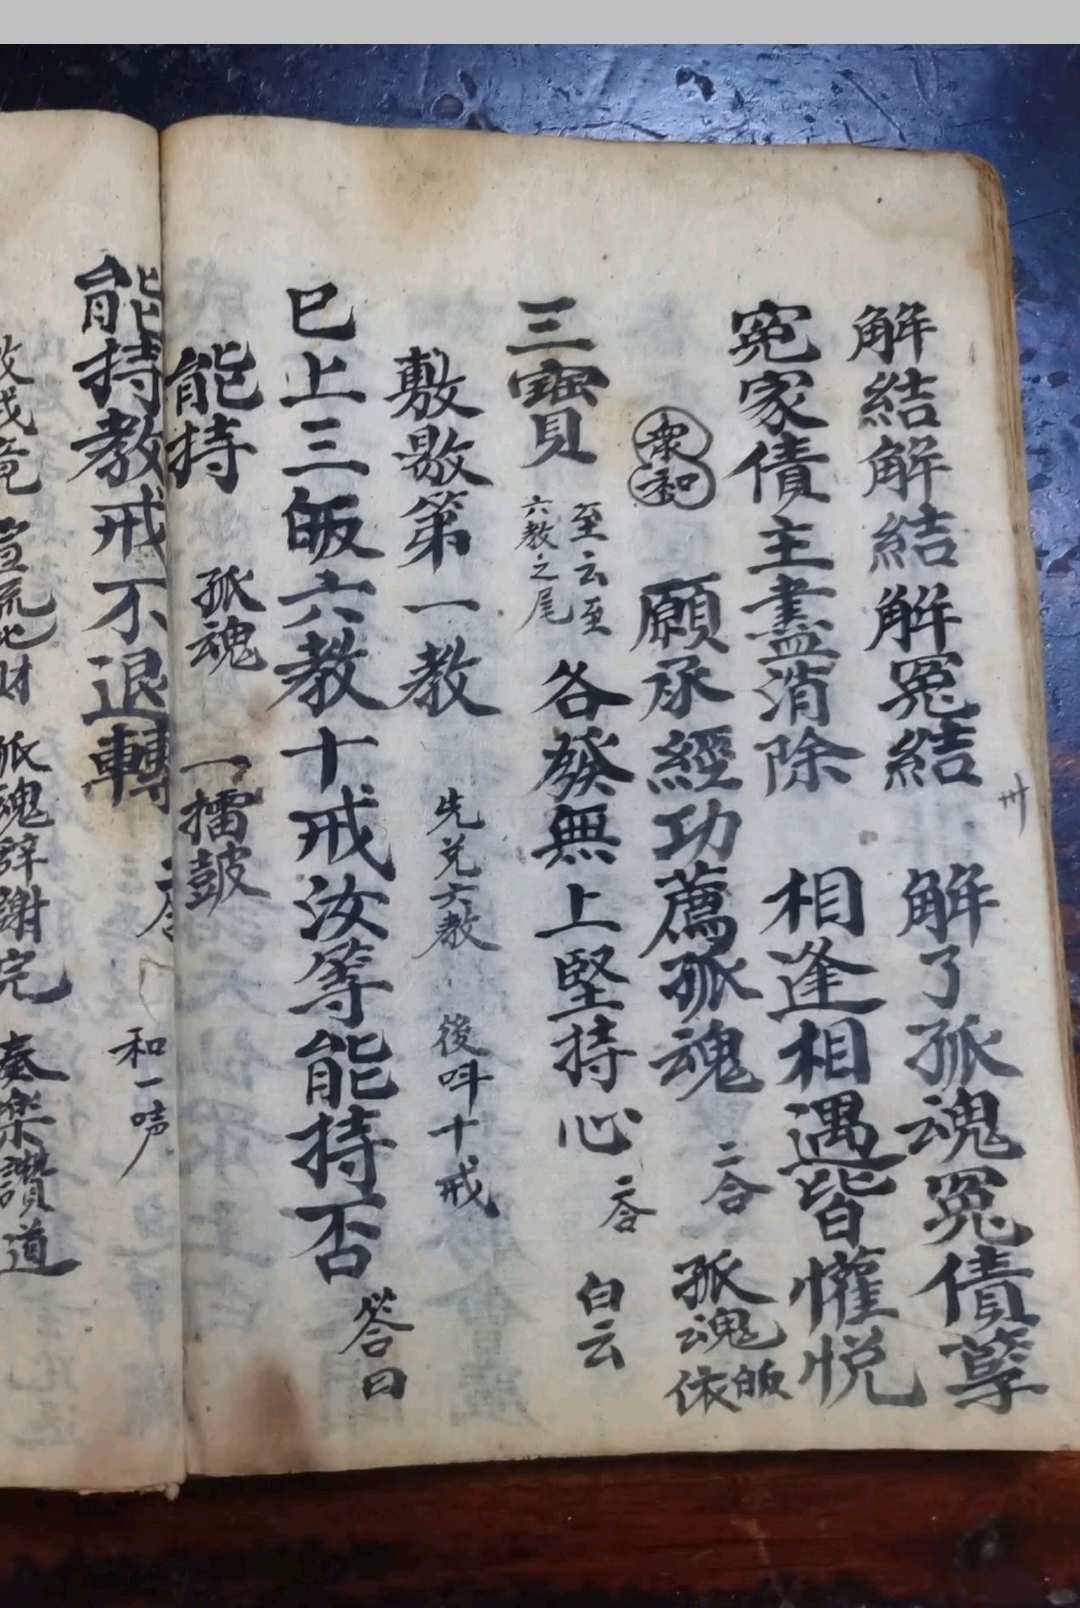 解結解結解冤結　解了孤魂冤債孽
冤家債主盡消除　相逢相遇皆懽悅
衆和　願承經功薦孤魂　二合　孤魂皈依
三寶　至云至六教之尾　各發無上堅持心　二合　白云
敷敭第一教　先兌六教　後呌十戒
巳上三皈六教十戒汝等能持否　答曰
能持　孤魂　一擂鼓
能持教戒不退轉　二合　和一嗊
孤魂辞謝完　奏楽讚道